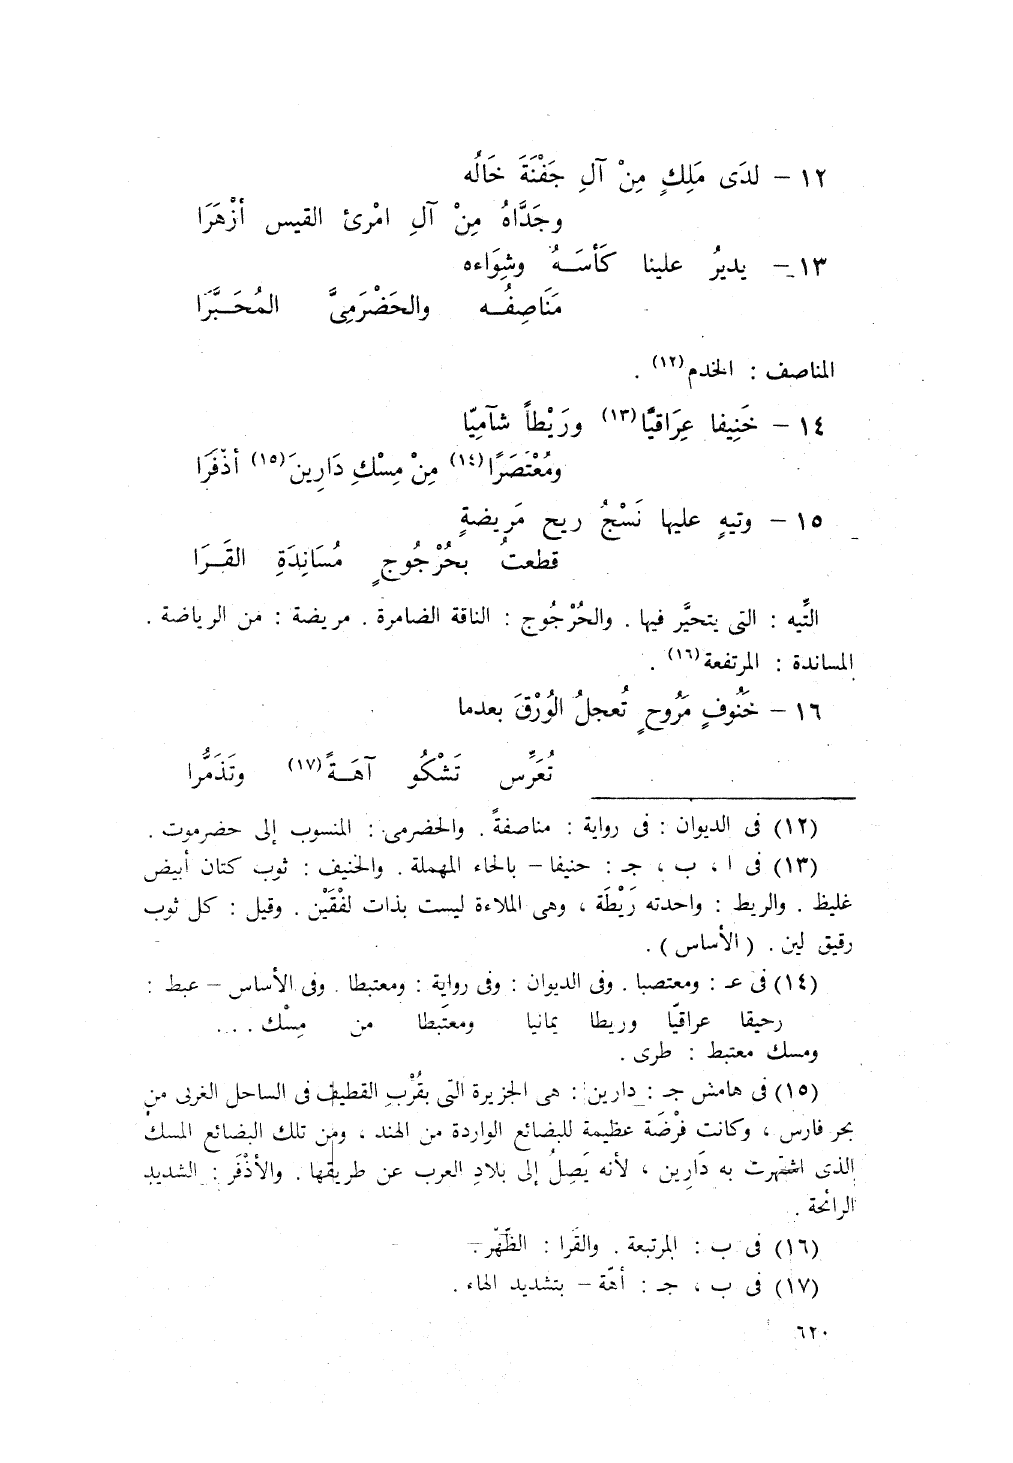 ١٢ - لدَى مَلِكٍ مِنْ آلِ جَفْنَةَ خَالُه
وجَدَّاهُ مِنْ آلِ امْرئ القيس أزْهَرَا
١٣ - يديرُ علينا كَأسَـهُ وشِوَاءه
مَنَاصِفُـه والحَضْرَمِىَّ المُحَـبَّرَا
المناصف : الخدم (١٢) .
١٤ - خَنِيفا عِرَاقيًّا (١٣) ورَيْطاً شآمِيّا
ومُعْتَصَرًا (١٤) مِنْ مِسْكِ دَارِينَ (١٥) أذْفَرَا
١٥ - وتيهٍ عليها نَسْجُ ريح مَريضةٍ
قطعتُ بحُرْجُوجٍ مُسَانِدَةِ القَـرَا
التِّيه : التى يتحيَّر فيها . والحُرْجُوج : الناقة الضامرة . مريضة : من الرياضة .
المساندة : المرتفعة (١٦) .
١٦ - خَنُوفٍ مَرُوحٍ تُعجلُ الوُرْقَ بعدما
تُعَرِّس تَشْكُو آهَـةً (١٧) وتَذَمُّرا
(١٢) فى الديوان : فى رواية : مناصفةً . والحضرمى : المنسوب إلى حضرموت .
(١٣) فى ا ، ب ، جـ : حنيفا - بالحاء المهملة . والخنيف : ثوب كتان أبيض
غليظ . والريط : واحدته رَيْطَة ، وهى الملاءة ليست بذات لفْقَيْن . وقيل : كل ثوب
رقيق لين . ( الأساس ) .
(١٤) فى عـ : ومعتصبا . وفى الديوان : وفى رواية : ومعتبطا . وفى الأساس - عبط :
رحيقا عراقيّا وريطا يمانيا ومعتَبطا من مِسْك . . .
ومسك معتبط : طرى .
(١٥) فى هامش جـ : دارين : هى الجزيرة التى بقُرْبِ القطيف فى الساحل الغربى من
بحر فارس ، وكانت فرْضَة عظيمة للبضائع الواردة من الهند ، ومن تلك البضائع المسك
الذى اشتهرت به دَارِين ، لأنه يَصِلُ إلى بلادِ العرب عن طريقها . والأذْفَر : الشديد
الرائحة .
(١٦) فى ب : المرتبعة . والقَرا : الظَّهْر .
(١٧) فى ب ، جـ : أهّة - بتشديد الهاء .
٦٢٠